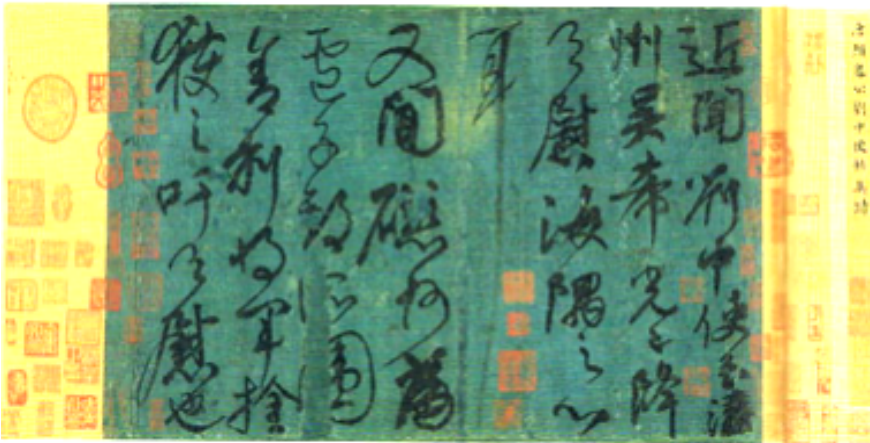 唐顏魯公劉中使帖真蹟
近聞劉中使至瀛
州吳希光已降
足慰海隅之心
耳
又聞磁州為
盧子期所圍
舍利將軍擒
獲之吁足慰也